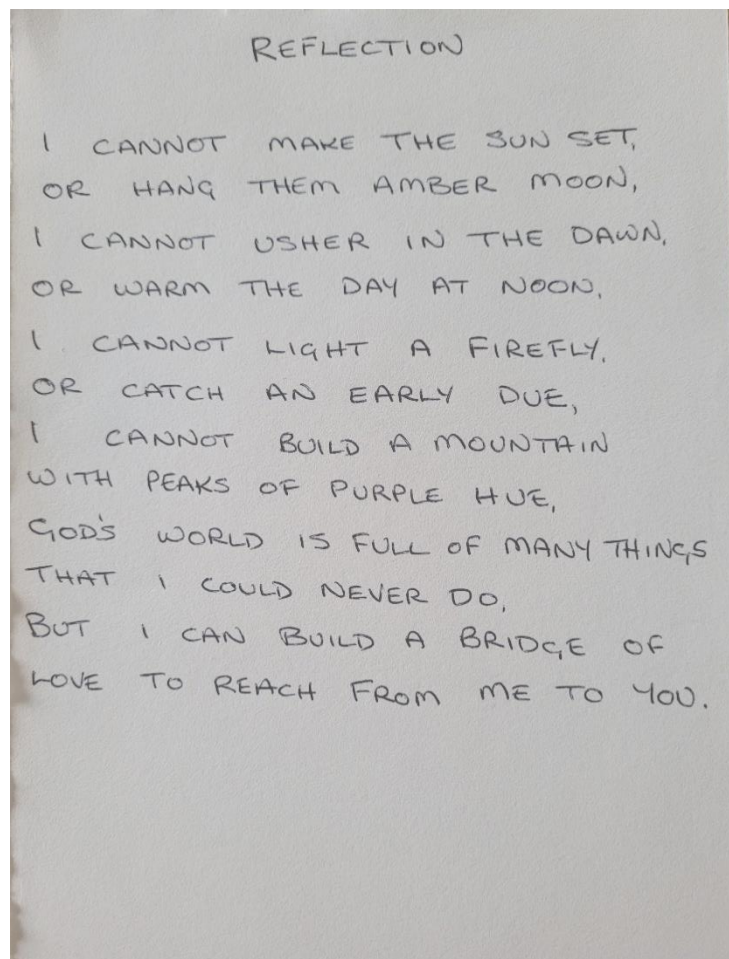 REFLECTION
I CANNOT MAKE THE SUN SET,
OR HANG THEM AMBER MOON,
I CANNOT USHER IN THE DAWN,
OR WARM THE DAY AT NOON,
I CANNOT LIGHT A FIREFLY,
OR CATCH AN EARLY DUE,
I CANNOT BUILD A MOUNTAIN
WITH PEAKS OF PURPLE HUE,
GOD'S WORLD IS FULL OF MANY THINGS
THAT I COULD NEVER DO,
BUT I CAN BUILD A BRIDGE OF
LOVE TO REACH FROM ME TO YOU.